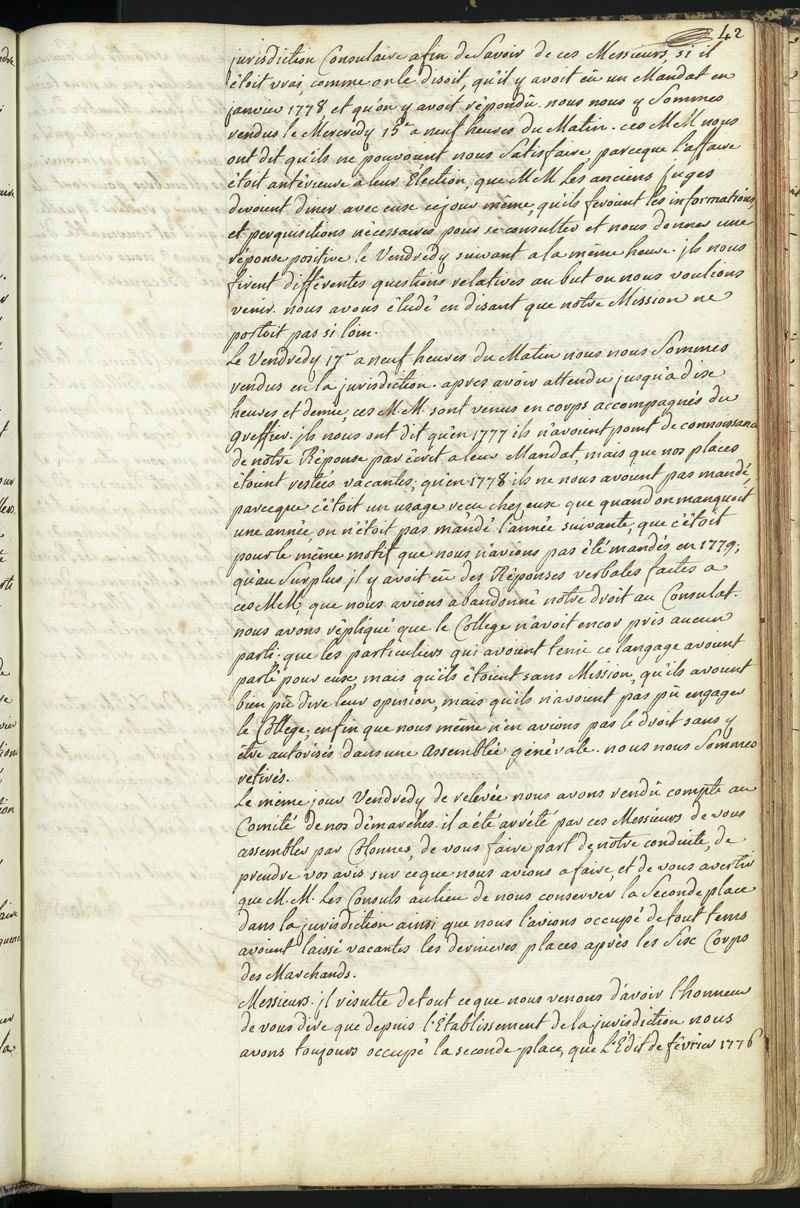 42
jurisdiction Consulaire afin de Savoir de ces Messieurs, si il
étoit vrai, comme on le disoit, qu'il y avoit eû un Mandat en
janvier 1778, et qu'on y avoit répondû. nous nous y Sommes
rendus le Mercredy 15 a neuf heures du Matin. ces MM nous
ont dit qu'ils ne pouvoient nous Satisfaire parceque l'affaire
étoit antérieure a leur Élection, que MM. Les anciens juges
devoient diner avec euxe ce jour même, qu'ils feroient les informations
et perquisitions necessaires pour se consulter et nous donner une
réponse positive le Vendredy suivant a la même heure. jls nous
firent différentes questions relatives au but ou nous voulions
venir. nous avons éludé en disant que notre Mission ne
portoit pas si loin.
Le Vendredy 17 a neuf heures du Matin nous nous Sommes
rendus en la jurisdiction. apres avoir attendu jusqu'a dixe
heures et demie, ces M.M. sont venus en corps accompagnés du
greffier. jls nous ont dit qu'en 1777 ils n'avoient point de connoissance
de notre Réponse par écrit a leur Mandat, mais que nos places
étoient restées vacantes; qu'en 1778 ils ne nous avoient pas mandé,
parceque c'étoit un usage recu chez euxe que quand on manquoit
une année, on n'étoit pas mandé l'année suivante, que c'étoit
pour le même motif que nous n'avions pas été mandés en 1779;
qu'au Surplus jl y avoit eû des Réponses verbales faites a
ces MM, que nous avions abandonné notre droit au Consulat.
nous avons répliqué que le College n'avoit encor pris aucun
parti. que les particuliers qui avoient tenu ce langage avoient
parlé pour euxe mais qu'ils étoient sans Mission, qu'ils avoient
bien pû dire leur opinion, mais qu'ils n'avoient pas pû engager
le College; enfin que nous même n'en avions pas le droit sans y
être autorisés dans une assemblée générale. nous nous Sommes
retirés.
Le même jour Vendredy de relevée nous avons rendû compte au
Comité de nos démarches. il a été arrété par ces Messieurs de vous
assembler par Colonnes, de vous faire part de notre conduite, de
prendre vos avis sur ce que nous avions a faire, et de vous avertir
que M.M. Les Consuls au lieu de nous conserver la Seconde place
dans la jurisdiction ainsi que nous l'avions occupé de tout tems
avoient laissé vacantes les dernieres places après les Sixe Corps
des Marchands.
Messieurs. jl résulte de tout ce que nous venons d'avoir l'honneur
de vous dire que depuis l'Établissement de la jurisdiction nous
avons toujours occupé la seconde place, que L'Édit de février 1776